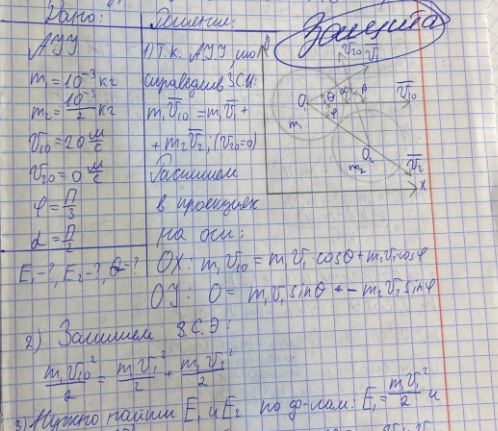 Дано:
АУУ
m₁ = 10⁻³ кг
m₂ = 10⁻³/2 кг
v₁₀ = 20 м/с
v₂₀ = 0 м/с
φ = П/3
α = П/2
E₁ - ?, E₂ - ?, θ - ?
Решение:
1) Т.к. АУУ, то
справедлив ЗСИ:
m₁v̅₁₀ = m₁v̅₁ +
+ m₂v̅₂, (v̅₂₀=0)
Распишем
в проекциях
на оси:
OX: m₁v₁₀ = m₁v₁·cosθ + m₂v₂cosφ
OY: 0 = m₁v₁sinθ - m₂v₂sinφ
Защита
v̅₂₀ v̅₁
O₁ θ α β v̅₁₀
φ
m₁
O₂
m₂ v̅₂
X
2) Запишем З.С.Э:
m₁v₁₀²/2 = m₁v₁²/2 + m₂v₂²/2
3) Нужно найти E₁ и E₂ по ф-лам: E₁ = m₁v₁²/2 и